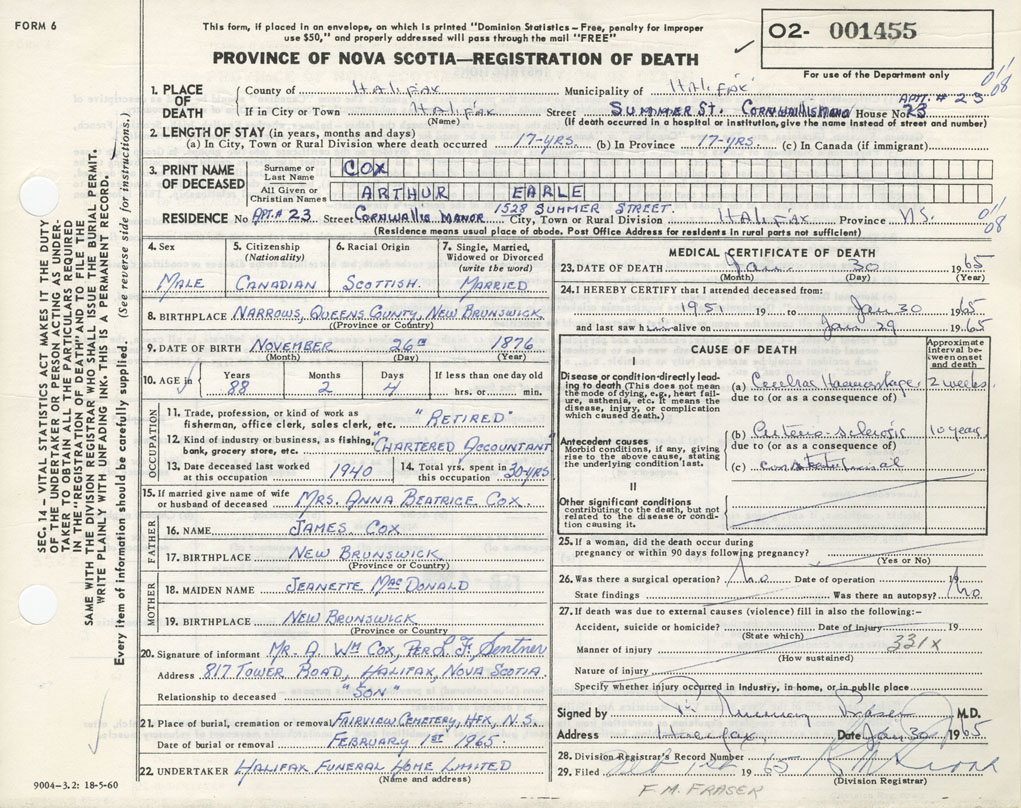 FORM 6
This form, if placed in an envelope, on which is printed "Dominion Statistics—Free, penalty for improper
use $50," and properly addressed will pass through the mail "FREE"
O2- 001455
For use of the Department only
PROVINCE OF NOVA SCOTIA—REGISTRATION OF DEATH
1. PLACE OF DEATH
County of Halifax Municipality of Halifax
APT. # 23
If in City or Town Halifax Street SUMMER ST. CORNWALLIS MANO House No. 23
(Name) (If death occurred in a hospital or institution, give the name instead of street and number)
2. LENGTH OF STAY (in years, months and days)
(a) In City, Town or Rural Division where death occurred 17-YRS. (b) In Province 17-YRS. (c) In Canada (if immigrant)
3. PRINT NAME OF DECEASED
Surname or Last Name COX
All Given or Christian Names ARTHUR EARLE
RESIDENCE No APT. # 23 Street CORNWALLIS MANOR 1528 SUMMER STREET. City, Town or Rural Division Halifax Province N.S.
(Residence means usual place of abode. Post Office Address for residents in rural parts not sufficient)
4. Sex MALE
5. Citizenship (Nationality) CANADIAN
6. Racial Origin SCOTTISH.
7. Single, Married, Widowed or Divorced (write the word) MARRIED
8. BIRTHPLACE NARROWS, QUEENS COUNTY, NEW BRUNSWICK
(Province or Country)
9. DATE OF BIRTH NOVEMBER 26th 1876
(Month) (Day) (Year)
10. AGE in Years 88 Months 2 Days 4 If less than one day old hrs. or min.
OCCUPATION
11. Trade, profession, or kind of work as
fisherman, office clerk, sales clerk, etc. "RETIRED"
12. Kind of industry or business, as fishing,
bank, grocery store, etc. CHARTERED ACCOUNTANT
13. Date deceased last worked at this occupation 1940
14. Total yrs. spent in this occupation 30-YRS
15. If married give name of wife
or husband of deceased MRS. ANNA BEATRICE COX.
FATHER
16. NAME JAMES COX
17. BIRTHPLACE NEW BRUNSWICK
(Province or Country)
MOTHER
18. MAIDEN NAME JEANETTE MACDONALD
19. BIRTHPLACE NEW BRUNSWICK
(Province or Country
20. Signature of informant MR. A. WM COX, PER L.F. Sentner
Address 817 TOWER ROAD, HALIFAX, NOVA SCOTIA
Relationship to deceased "SON"
21. Place of burial, cremation or removal FAIRVIEW CEMETERY, HFX, N.S.
Date of burial or removal FEBRUARY 1ST 1965
22. UNDERTAKER HALIFAX FUNERAL HOME LIMITED
(Name and address)
MEDICAL CERTIFICATE OF DEATH
23. DATE OF DEATH Jan. 30 1965
(Month) (Day) (Year)
24. I HEREBY CERTIFY that I attended deceased from:
1951 19 to Jan 30 1965
and last saw him alive on Jan 29 1965
CAUSE OF DEATH
Approximate interval between onset and death
I
Disease or condition directly leading to death (This does not mean the mode of dying, e.g., heart failure, asthenia, etc. It means the disease, injury, or complication which caused death.)
(a) Cerebral Haemorrhage 2 weeks.
due to (or as a consequence of)
Antecedent causes
Morbid conditions, if any, giving rise to the above cause, stating the underlying condition last.
(b) Arterio-sclerosis 10 years
due to (or as a consequence of)
(c)
II
Other significant conditions
contributing to the death, but not related to the disease or condition causing it.
25. If a woman, did the death occur during
pregnancy or within 90 days following pregnancy?
(Yes or No)
26. Was there a surgical operation? No Date of operation 19
State findings Was there an autopsy? No
27. If death was due to external causes (violence) fill in also the following:—
Accident, suicide or homicide? Date of Injury 19
(State which)
Manner of injury 331X
(How sustained)
Nature of injury
Specify whether injury occurred in Industry, in home, or in public place
Signed by Murray Fraser M.D.
Address Halifax Date Jan 30 1965
28. Division Registrar's Record Number
29. Filed Feb 1st 1965
(Division Registrar)
F. M. FRASER
9004-3.2: 18-5-60
SEC. 14 — VITAL STATISTICS ACT MAKES IT THE DUTY
OF THE UNDERTAKER OR PERSON ACTING AS UNDER-
TAKER TO OBTAIN ALL THE PARTICULARS REQUIRED
IN THE "REGISTRATION OF DEATH" AND TO FILE THE
SAME WITH THE DIVISION REGISTRAR WHO SHALL ISSUE THE BURIAL PERMIT.
WRITE PLAINLY WITH UNFADING INK. THIS IS A PERMANENT RECORD.
Every item of information should be carefully supplied. (See reverse side for instructions.)